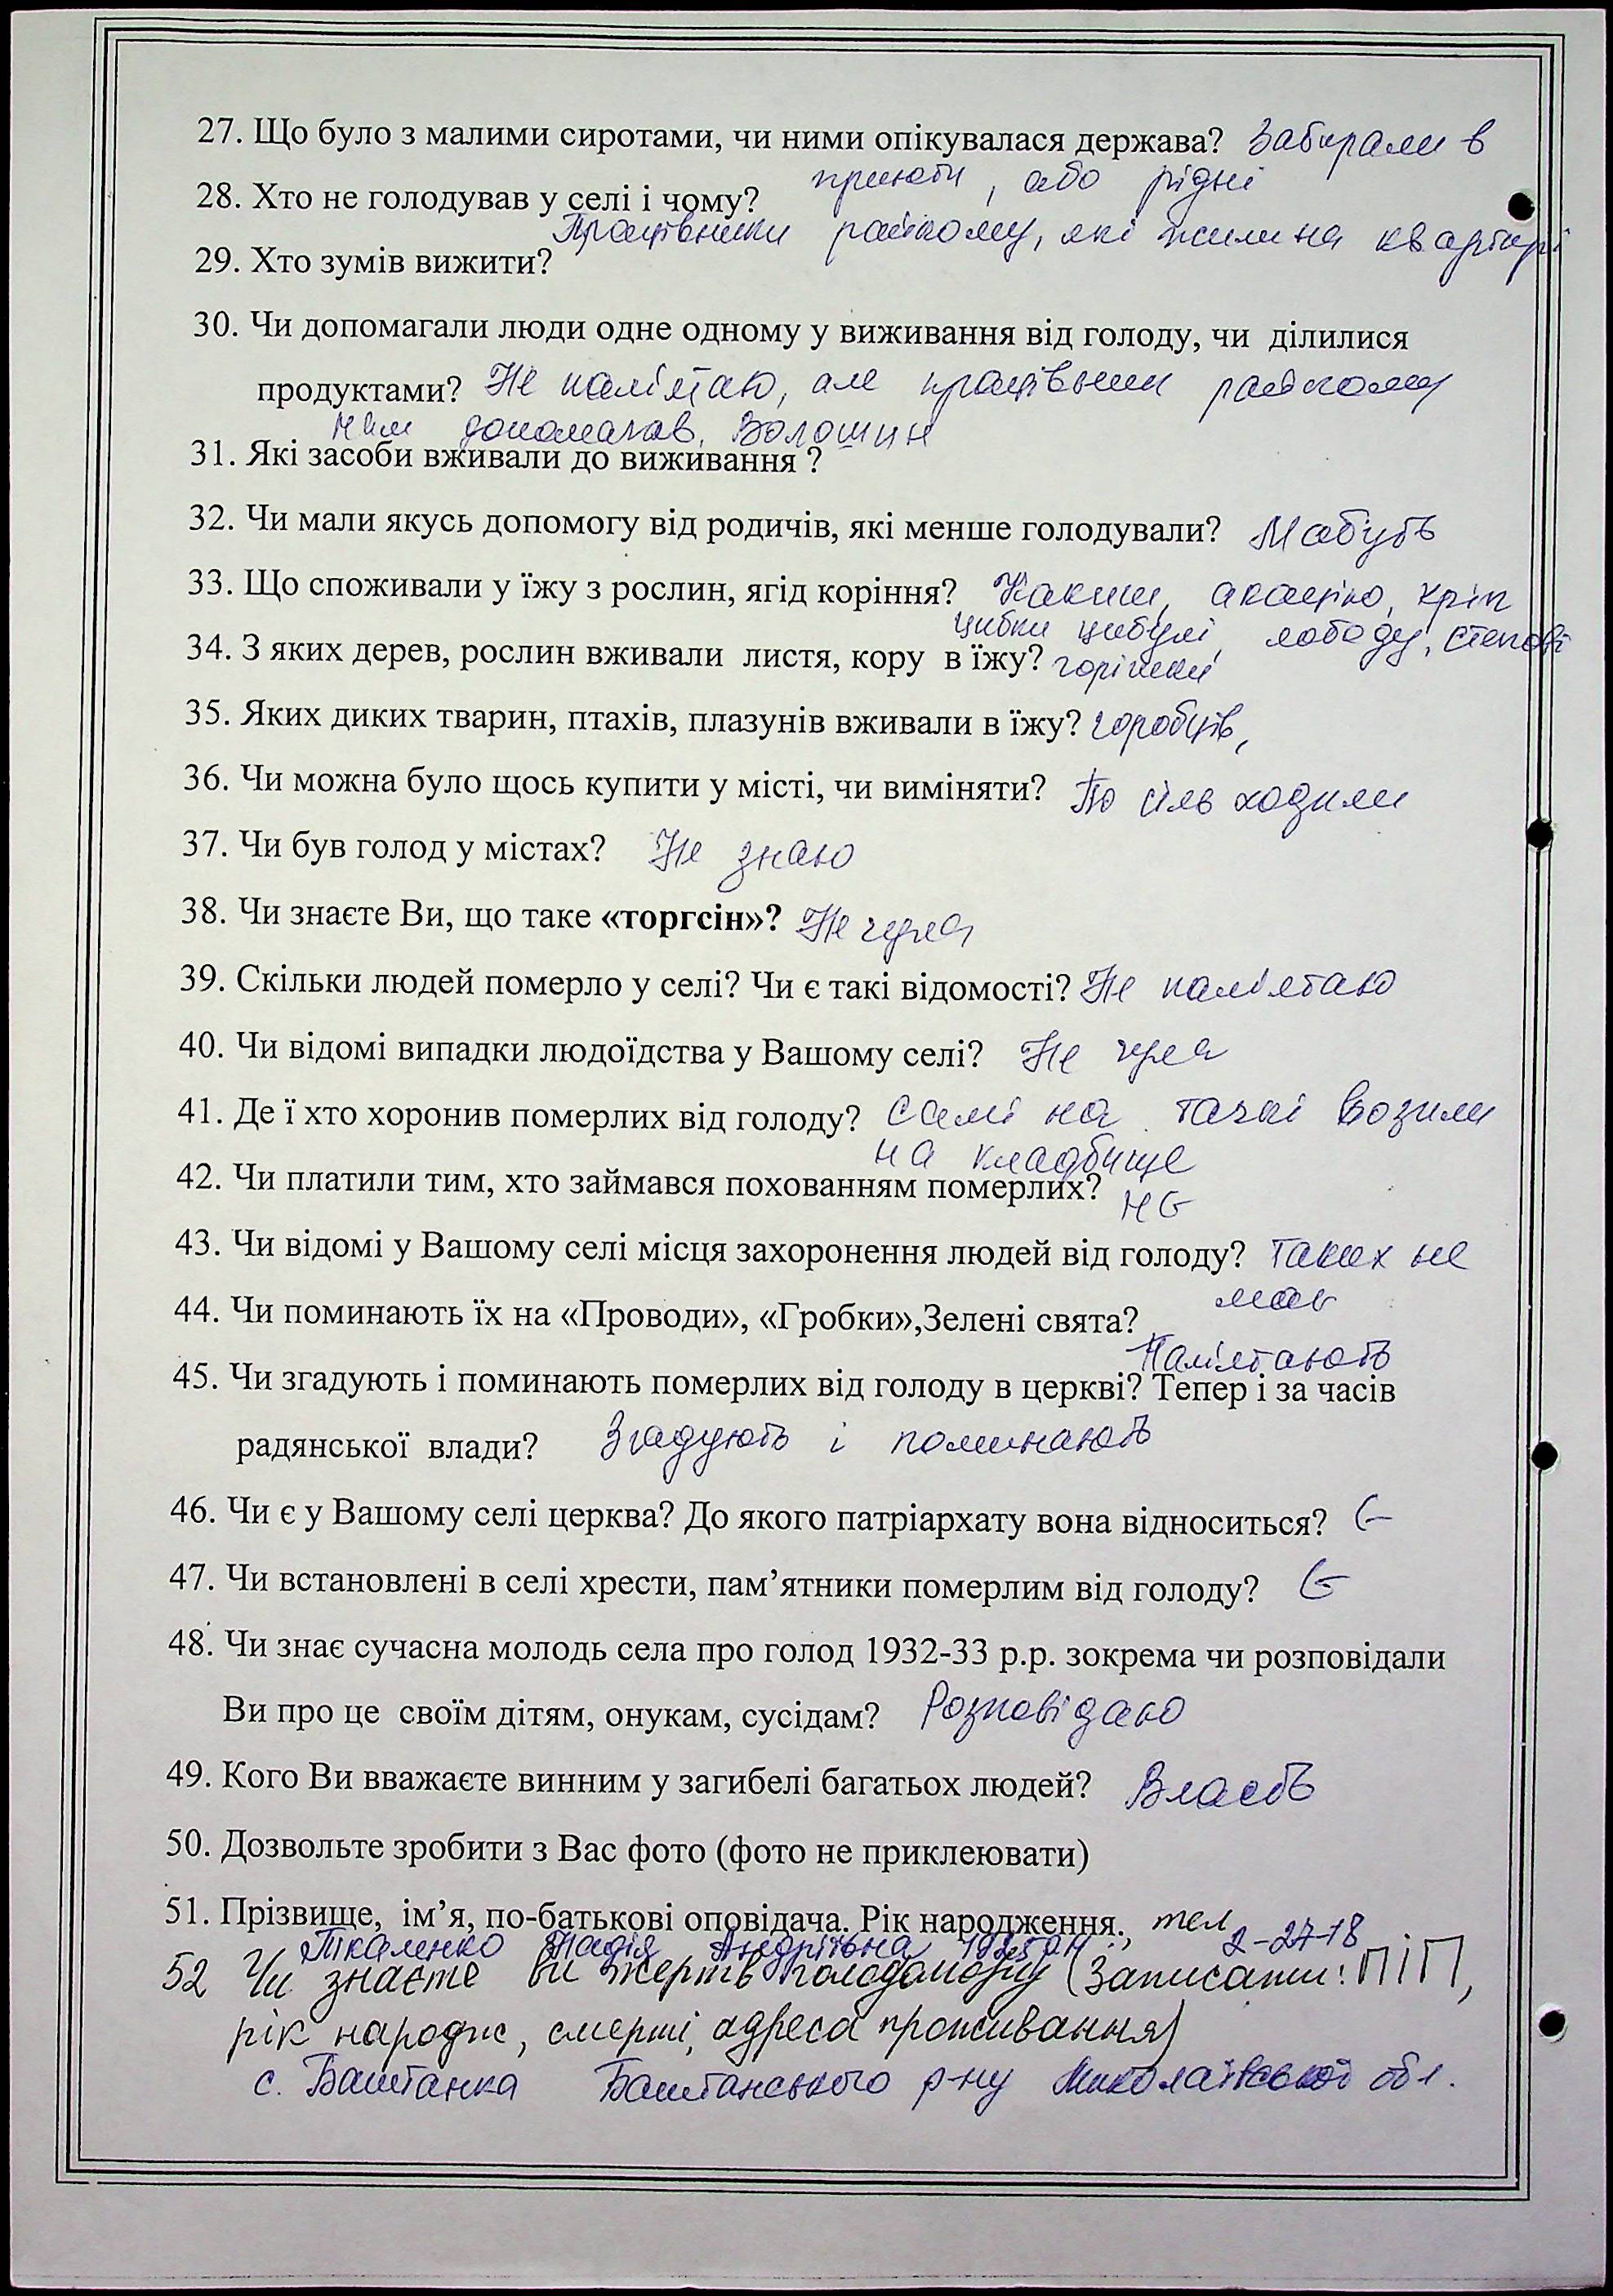 27. Що було з малими сиротами, чи ними опікувалася держава? Забирали в
приюти, або рідні
28. Хто не голодував у селі і чому?
Працівники райкому, які жили на квартирі
29. Хто зумів вижити?
30. Чи допомагали люди одне одному у виживання від голоду, чи ділилися
продуктами? Не пам'ятаю, але працівник райкому
нам допомагав, Волошин
31. Які засоби вживали до виживання ?
32. Чи мали якусь допомогу від родичів, які менше голодували? Мабуть
33. Що споживали у їжу з рослин, ягід коріння? акацію, кріп
цибки цибулі, лободу, степові
34. З яких дерев, рослин вживали листя, кору в їжу? горішки
35. Яких диких тварин, птахів, плазунів вживали в їжу? горобців,
36. Чи можна було щось купити у місті, чи виміняти? По сіль ходили
37. Чи був голод у містах? Не знаю
38. Чи знаєте Ви, що таке «торгсін»? Не чула
39. Скільки людей померло у селі? Чи є такі відомості? Не пам'ятаю
40. Чи відомі випадки людоїдства у Вашому селі? Не чула
41. Де ї хто хоронив померлих від голоду? Самі на тачкі возили
на кладбище
42. Чи платили тим, хто займався похованням померлих? Не
43. Чи відомі у Вашому селі місця захоронення людей від голоду? Таких не
має
44. Чи поминають їх на «Проводи», «Гробки»,Зелені свята?
Пам'ятають
45. Чи згадують і поминають померлих від голоду в церкві? Тепер і за часів
радянської влади? Згадують і поминають
46. Чи є у Вашому селі церква? До якого патріархату вона відноситься? Є
47. Чи встановлені в селі хрести, пам’ятники померлим від голоду? Є
48. Чи знає сучасна молодь села про голод 1932-33 р.р. зокрема чи розповідали
Ви про це своїм дітям, онукам, сусідам? Розповідаю
49. Кого Ви вважаєте винним у загибелі багатьох людей? Власть
50. Дозвольте зробити з Вас фото (фото не приклеювати)
51. Прізвище, ім’я, по-батькові оповідача. Рік народження., тел
Ткаленко Надія Андріївна 2-27-18
52 Чи знаєте ви жертв голодомору (Записати: ПІП,
рік народж, смерті, адреса проживання)
с. Баштанка Баштанського р-ну Миколаївської обл.